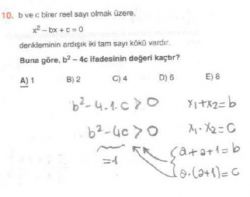 10. b ve c birer reel sayı olmak üzere,
x² – bx + c = 0
denkleminin ardışık iki tam sayı kökü vardır.
Buna göre, b² – 4c ifadesinin değeri kaçtır?
A) 1 B) 2 C) 4 D) 6 E) 8
b²-4.1.c > 0 x₁+x₂=b
b²-4c > 0 x₁.x₂=c
=1
a+a+1=b
a.(a+1)=c